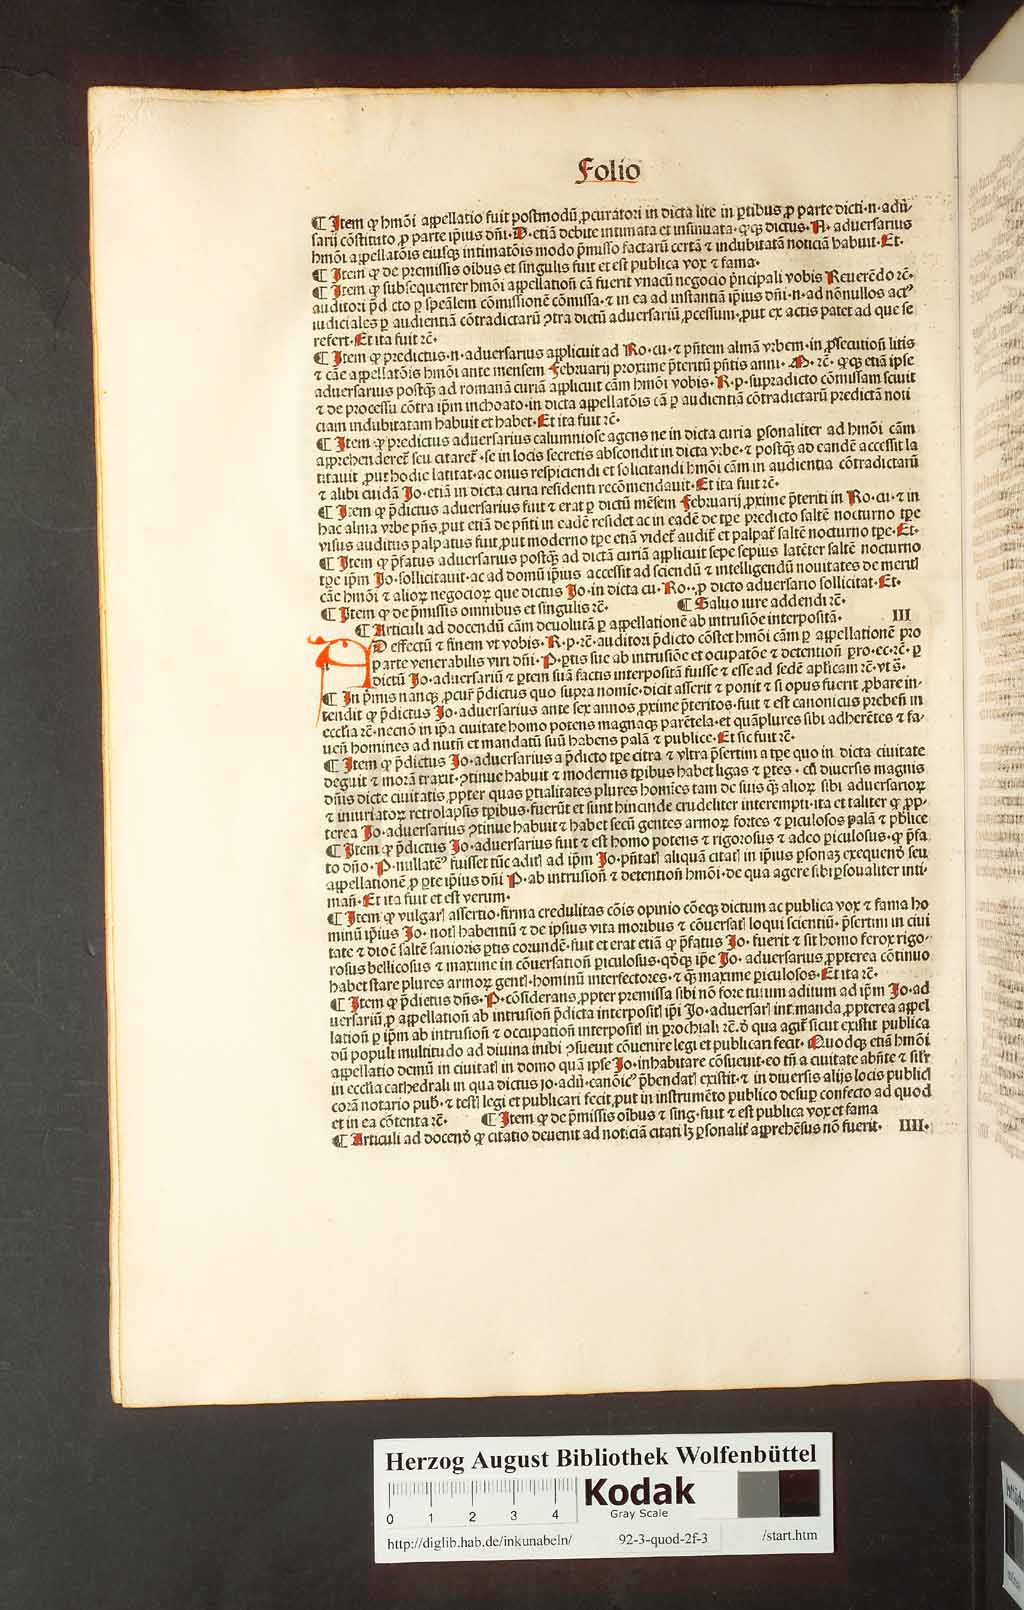 Folio
¶ Item ꝙ hmõi appellatio fuit postmodũ ꝓcuratori in dicta lite in ꝑtibus ꝓ parte dicti·n·adũ-
sarij cõstituto ꝓ parte ip̃ius dñi·D·etiã debite intimata et insinuata·qꝫqꝫ dictus·N·aduersarius
hmõi appellatõis eiusqꝫ intimatõis modo p̃misso factarũ certã ⁊ indubitatã noticiã habuit·Et·
¶ Item ꝙ de premissis oĩbus et singulis fuit et est publica vox ⁊ fama·
¶ Item ꝙ subsequenter hmõi appellatioñ cã fuerit vnacũ negocio p̃ncipali vobis Reuerẽdo ⁊c̃·
auditori p̃d cto ꝑ speãlem cõmissionẽ cõmissa·⁊ in ea ad instantiã ip̃ius dñi·n·ad nõnullos actꝰ
iudiciales ꝑ audientiã cõtradictarũ ꝯtra dictũ aduersariũ ꝓcessum·ꝓut ex actis patet ad que se
refert·Et ita fuit ⁊c̃·
¶ Item ꝙ predictus·n·aduersarius applicuit ad Ro·cu·⁊ p̃ñtem almã vrbem·in ꝓsecutioñ litis
⁊ cãe appellatõis hmõi ante mensem Februarij proxime p̃teritũ p̃ñtis anni·M·⁊c̃·qꝫqꝫ etiã ipse
aduersarius postqꝫ ad romanã curiã applicuit cãm hmõi vobis·R·p·supradicto cõmissam sciuit
⁊ de processu cõtra ip̃m inchoato·in dicta appellatõis cã ꝑ audientiã cõtradictarũ predictã noti
ciam indubitatam habuit et habet·Et ita fuit ⁊c̃·
¶ Item ꝙ predictus aduersarius calumniose agens ne in dicta curia ꝑsonaliter ad hmõi cãm
apprehenderet̃ seu citaret̃·se in locis secretis abscondit in dicta vrbe·⁊ postqꝫ ad eandẽ accessit la
titauit ꝓut hodie latitat·ac onus respiciendi et solicitandi hmõi cãm in audientia cõtradictarũ
⁊ alibi cuidã Jo·etiã in dicta curia residenti recõmendauit·Et ita fuit ⁊c̃·
¶ Item ꝙ p̃dictus aduersarius fuit ⁊ erat ꝑ dictũ mẽsem Februarij ꝓxime p̃teriti in Ro·cu·⁊ in
hac alma vrbe pñs ꝓut etiã de p̃ñti in eadẽ residet ac in eadẽ de tꝑe predicto saltẽ nocturno tꝑe
visus auditus palpatus fuit ꝓut moderno tꝑe etiã videt̃ audit̃ et palpat̃ saltẽ nocturno tꝑe·Et·
¶ Item ꝙ p̃fatus aduersarius postqꝫ ad dictã curiã applicuit sepe sepius latẽter saltẽ nocturno
tꝑe ip̃m Jo·sollicitauit·ac ad domũ ip̃ius accessit ad sciendũ ⁊ intelligendũ nouitates de meritl
cãe hmõi ⁊ alioꝝ negocioꝝ que dictus Jo·in dicta cu·Ro··ꝓ dicto aduersario sollicitat·Et·
¶ Item ꝙ de p̃missis omnibus et singulis ⁊c̃· ¶ Saluo iure addendi ⁊c̃·
¶ Articuli ad docendũ cãm deuolutã ꝑ appellationẽ ab intrusiõe interpositã· III
AD effectũ ⁊ finem vt vobis·R·p·⁊c̃·auditori p̃dicto cõstet hmõi cãm ꝑ appellationẽ pro
parte venerabilis viri dñi·P·ꝑtis sue ab intrusiõe et ocupatõe ⁊ detentioñ ꝑro·ec·⁊c̃·ꝑ
dictũ Jo·aduersariũ ⁊ ꝑtem suã factis interpositã fuisse ⁊ esse ad sedẽ aplicam ⁊c̃·vt s̃·
¶ In p̃mis nanqꝫ ꝓcur̃ p̃dictus quo supra nomĩe·dicit asserit ⁊ ponit ⁊ si opus fuerit ꝓbare in-
tendit ꝙ p̃dictus Jo·aduersarius ante sex annos ꝓxime p̃teritos·fuit ⁊ est canonicus prebeñ in
ecclĩa ⁊c̃·necnõ in ip̃a ciuitate homo potens magnaqꝫ parẽtela·et quãplures sibi adherẽtes ⁊ fa-
ueñ homines ad nutũ et mandatũ suũ habens palã ⁊ publice·Et sic fuit ⁊c̃·
¶ Item ꝙ p̃dictus Jo·aduersarius a p̃dicto tꝑe citra ⁊ vltra p̃sertim a tꝑe quo in dicta ciuitate
deguit ⁊ morã traxit·ꝯtinue habuit ⁊ modernis tꝑibus habet ligas ⁊ ꝑtes·cũ diuersis magnis
dñis dicte ciuitatis ꝓpter quas ꝑtialitates plures homĩes tam de suis qꝫ alioꝝ sibi aduersarioꝝ
⁊ iniuriatoꝝ retrolapsis tꝑibus·fuerũt et sunt hincinde crudeliter interempti·ita et taliter ꝙ ꝓp-
terea Jo·aduersarius ꝯtinue habuit ⁊ habet secũ gentes armoꝝ fortes ⁊ ꝑiculosos palã ⁊ pb̃lice
¶ Item ꝙ p̃dictus Jo·aduersarius fuit ⁊ est homo potens ⁊ rigorosus ⁊ adeo ꝑiculosus·ꝙ p̃fa
to dño·P·nullatẽꝰ fuisset tũc aditl ad ip̃m Jo·p̃ñtatl aliquã citatl in ip̃ius ꝑsonaꝫ exequenð seu
appellationẽ ꝓ ꝑte ip̃ius dñi P·ab intrusioñ ⁊ detentioñ hmõi·de qua agere sibi ꝑsoualiter inti-
mañ·Et ita fuit et est verum·
¶ Item ꝙ vulgarl assertio·firma credulitas cõis opinio cõeqꝫ dictum ac publica vox ⁊ fama ho
minũ ip̃ius Jo·notl habentiũ ⁊ de ip̃sius vita moribus ⁊ cõuersatl loqui scientiũ·p̃sertim in ciui
tate ⁊ dioc̃ saltẽ sanioris ꝑtis eorundẽ·fuit et erat etiã ꝙ p̃fatus Jo·fuerit ⁊ sit homo ferox rigo-
rosus bellicosus ⁊ maxime in cõuersatioñ ꝑiculosus·qð qꝫ ip̃e Jo·aduersarius ꝓpterea cõtinuo
habet stare plures armoꝝ gentl·hominũ interfectores·⁊ qꝫ maxime ꝑiculosos·Et ita ⁊c̃·
¶ Item ꝙ p̃dictus dñs·P·cõsiderans ꝓpter premissa sibi nõ fore tutum aditum ad ip̃m Jo·ad
uersariũ ꝓ appellatioñ ab intrusioñ p̃dicta interpositl ip̃i Jo·aduersarl intimanda ꝓpterea appel
latioñ ꝑ ip̃m ab intrusioñ ⁊ occupatioñ interpositl in ꝑrochiali ⁊c̃·ð qua agit̃ sicut existit publica
dũ populi multitudo ad diuina inibi ꝯsueuit cõuenire legi et publicari fecit·Quodqꝫ etiã hmõi
appellatio demũ in ciuitatl in domo quã ipse Jo·inhabitare cõsueuit·eo tñ a ciuitate abñte ⁊ silr̃
in ecclĩa cathedrali in qua dictus jo·adũ·canõicꝰ p̃bendatl existit·⁊ in diuersis alijs locis publicl
corã notario pub·⁊ testl legi et publicari fecit ꝓut in instrumẽto publico desuꝑ confecto ad quod
et in ea cõtenta ⁊c̃· ¶ Item ꝙ de p̃missis oĩbus ⁊ sing·fuit ⁊ est publica vox et fama
¶ Articuli ad docenð ꝙ citatio deuenit ad noticiã citati lꝫ ꝑsonalit̃ apprehẽsus nõ fuerit· IIII·
Herzog August Bibliothek Wolfenbüttel
0 1 2 3 4
Kodak
Gray Scale
http://diglib.hab.de/inkunabeln/ 92-3-quod-2f-3 /start.htm